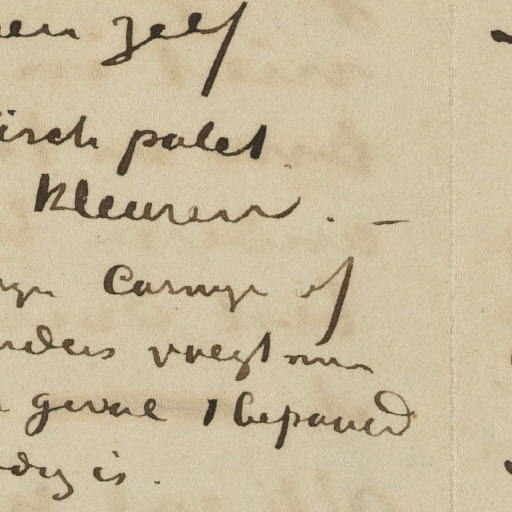 en zelf
isch palet
kleuren. —
Carnye of
nders voegt men
geval 1 bepaald
dig is.